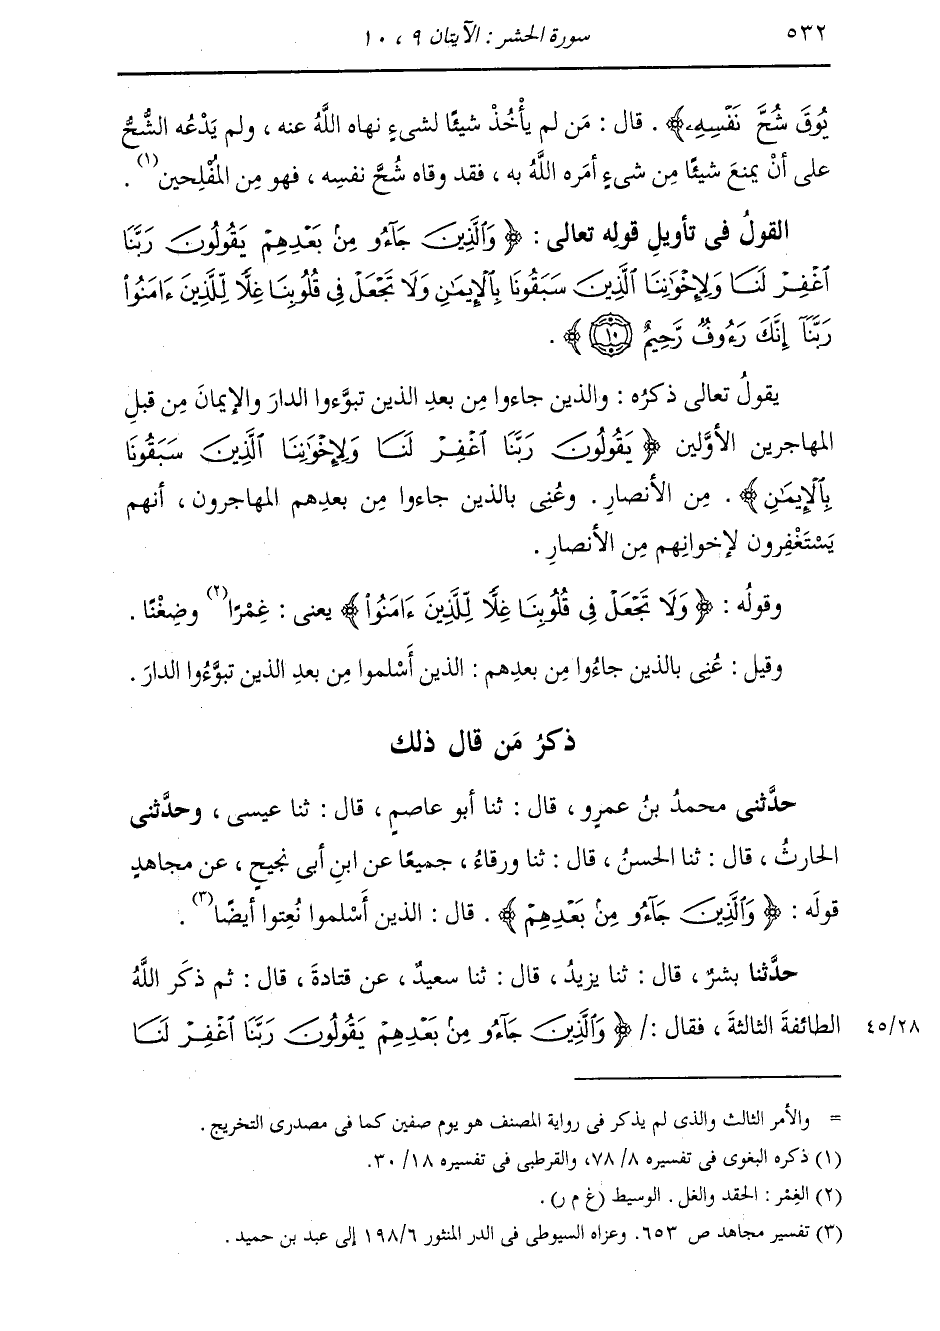 ٥٣٢
سورة الحشر : الآيتان ٩ ، ١٠
يُوقَ شُحَّ نَفْسِهِۦ﴾ . قال : مَن لم يأْخُذْ شيئًا لشىءٍ نهاه اللَّهُ عنه ، ولم يَدْعُه الشُّحُّ
على أنْ يمنعَ شيئًا مِن شىءٍ أمَره اللَّهُ به ، فقد وقاه شُحَّ نفسِه ، فهو مِن المُفْلِحين(١) .
القولُ فى تأويلِ قولِه تعالى : ﴿ وَٱلَّذِينَ جَآءُو مِنۢ بَعْدِهِمْ يَقُولُونَ رَبَّنَا
ٱغْفِرْ لَنَا وَلِإِخْوَٰنِنَا ٱلَّذِينَ سَبَقُونَا بِٱلْإِيمَٰنِ وَلَا تَجْعَلْ فِى قُلُوبِنَا غِلًّا لِّلَّذِينَ ءَامَنُوا۟
رَبَّنَآ إِنَّكَ رَءُوفٌ رَّحِيمٌ ١٠ ﴾ .
يقولُ تعالى ذكرُه : والذين جاءوا مِن بعدِ الذين تبوَّءوا الدارَ والإيمانَ مِن قبلِ
المهاجرين الأوَّلين ﴿ يَقُولُونَ رَبَّنَا ٱغْفِرْ لَنَا وَلِإِخْوَٰنِنَا ٱلَّذِينَ سَبَقُونَا
بِٱلْإِيمَٰنِ ﴾ . مِن الأنصارِ . وعُنِى بالذين جاءوا مِن بعدهم المهاجرون ، أنهم
يَسْتَغْفِرون لإخوانِهم مِن الأنصارِ .
وقولُه : ﴿ وَلَا تَجْعَلْ فِى قُلُوبِنَا غِلًّا لِّلَّذِينَ ءَامَنُوا۟ ﴾ يعنى : غِمْرًا(٢) وضِغْنًا .
وقيل : عُنِى بالذين جاءُوا مِن بعدِهم : الذين أَسْلموا مِن بعدِ الذين تبوَّءُوا الدارَ .
ذكرُ مَن قال ذلك
حدَّثنى محمدُ بنُ عمرٍو ، قال : ثنا أبو عاصمٍ ، قال : ثنا عيسى ، وحدَّثنى
الحارثُ ، قال : ثنا الحسنُ ، قال : ثنا ورقاءُ ، جميعًا عن ابنِ أبى نجيحٍ ، عن مجاهدٍ
قولَه : ﴿ وَٱلَّذِينَ جَآءُو مِنۢ بَعْدِهِمْ ﴾ . قال : الذين أَسْلموا نُعِتوا أيضًا(٣) .
حدَّثنا بشرٌ ، قال : ثنا يزيدُ ، قال : ثنا سعيدٌ ، عن قتادةَ ، قال : ثم ذكَر اللَّهُ
الطائفةَ الثالثةَ ، فقال :/ ﴿ وَٱلَّذِينَ جَآءُو مِنۢ بَعْدِهِمْ يَقُولُونَ رَبَّنَا ٱغْفِرْ لَنَا
٤٥/٢٨
= والأمر الثالث والذى لم يذكر فى رواية المصنف هو يوم صفين كما فى مصدرى التخريج .
(١) ذكره البغوى فى تفسيره ٨/ ٧٨، والقرطبى فى تفسيره ١٨/ ٣٠.
(٢) الغِمْر : الحقد والغل . الوسيط (غ م ر) .
(٣) تفسير مجاهد ص ٦٥٣. وعزاه السيوطى فى الدر المنثور ١٩٨/٦ إلى عبد بن حميد .